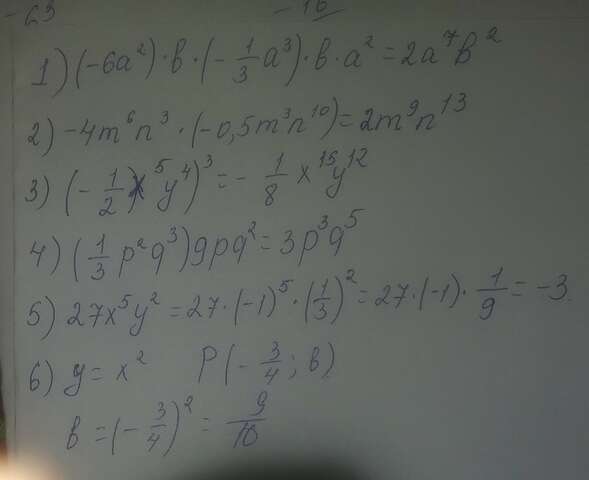 - 63 - 16
1) (-6a²)·b·(-1/3 a³)·b·a² = 2a⁷b²
2) -4m⁶n³·(-0,5m³n¹⁰) = 2m⁹n¹³
3) (-1/2 x⁵y⁴)³ = -1/8 x¹⁵y¹²
4) (1/3 p²q³)9pq² = 3p³q⁵
5) 27x⁵y² = 27·(-1)⁵·(1/3)² = 27·(-1)·1/9 = -3
6) y = x² P(-3/4; b)
b = (-3/4)² = 9/16